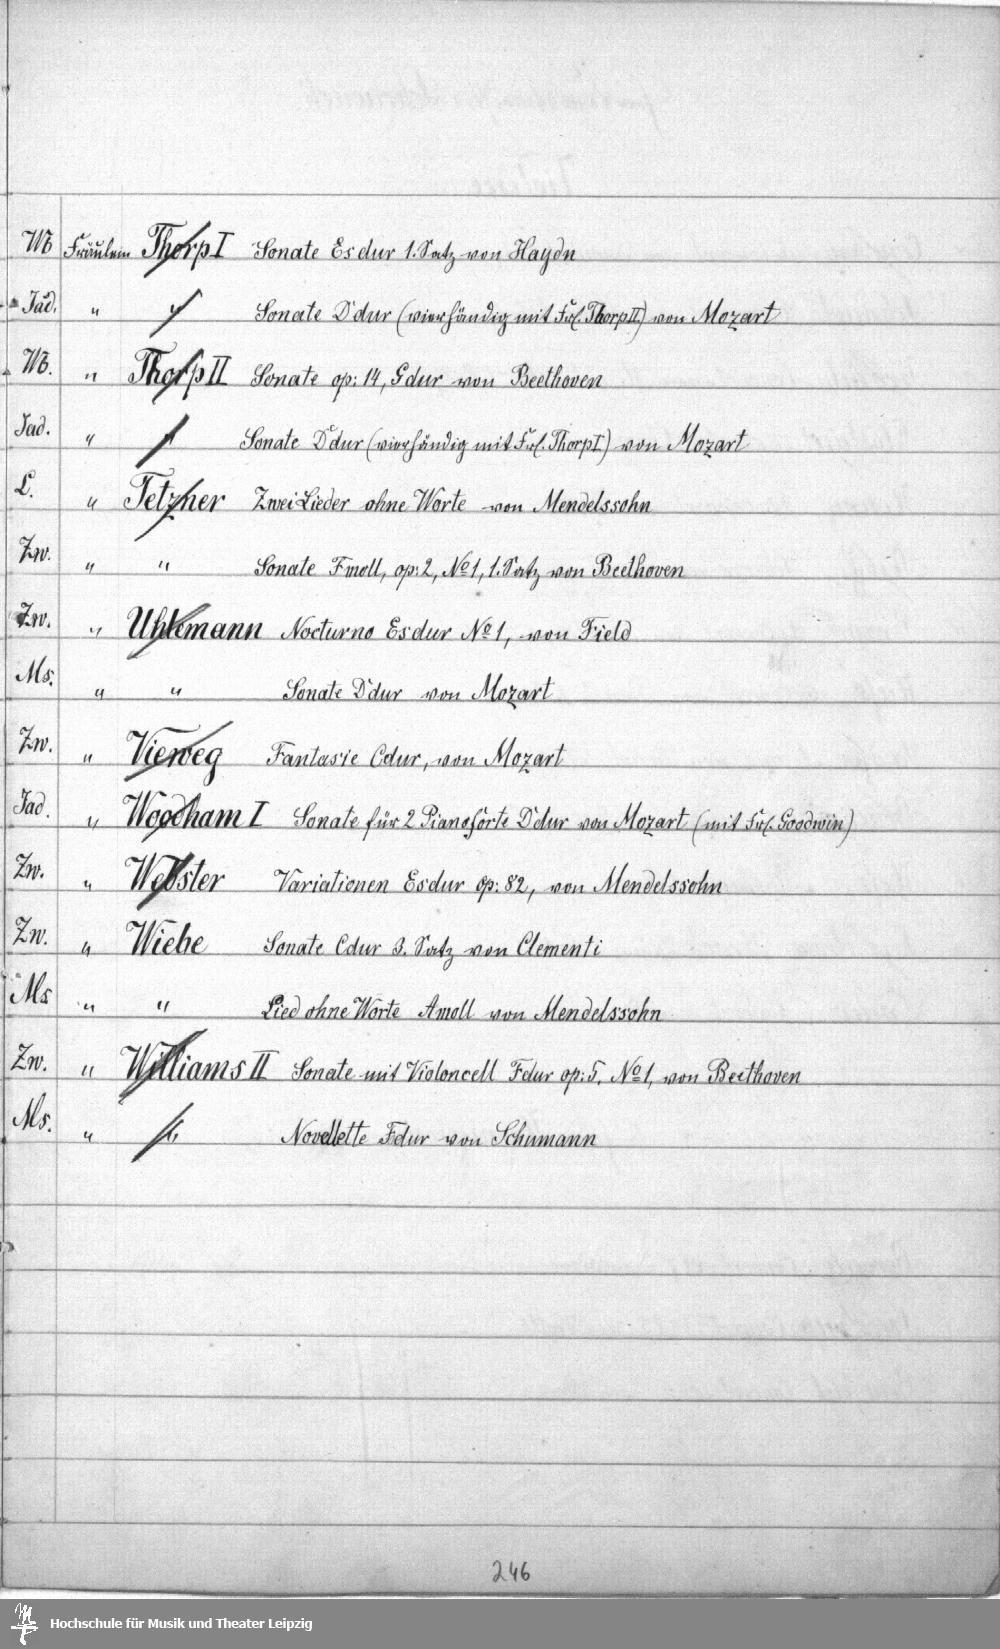 W Fräulein Thorp I Sonate Es dur 1. Satz von Haydn
Jad. " " Sonate D dur (vierhändig mit Frl. Thorp II) von Mozart
W. " Thorp II Sonate op: 14, G dur von Beethoven
Jad. " " Sonate D dur (vierhändig mit Frl. Thorp I) von Mozart
L. " Tetzner Zwei Lieder ohne Worte von Mendelssohn
Zw. " " Sonate F moll, op: 2, No 1, 1. Satz von Beethoven
Zw. " Uhlemann Nocturno Es dur No 1, von Field
Ms. " " Sonate D dur von Mozart
Zw. " Vieweg Fantasie C dur, von Mozart
Jad. " Woodham I Sonate für 2 Pianoforte D dur von Mozart (mit Frl. Goodwin)
Zw. " Webster Variationen Es dur op: 82, von Mendelssohn
Zw. " Wiebe Sonate C dur 3. Satz von Clementi
Ms " " Lied ohne Worte A moll von Mendelssohn
Zw. " Williams II Sonate mit Violoncell F dur op: 5, No 1, von Beethoven
Ms. " " Novellette F dur von Schumann
246
Hochschule für Musik und Theater Leipzig